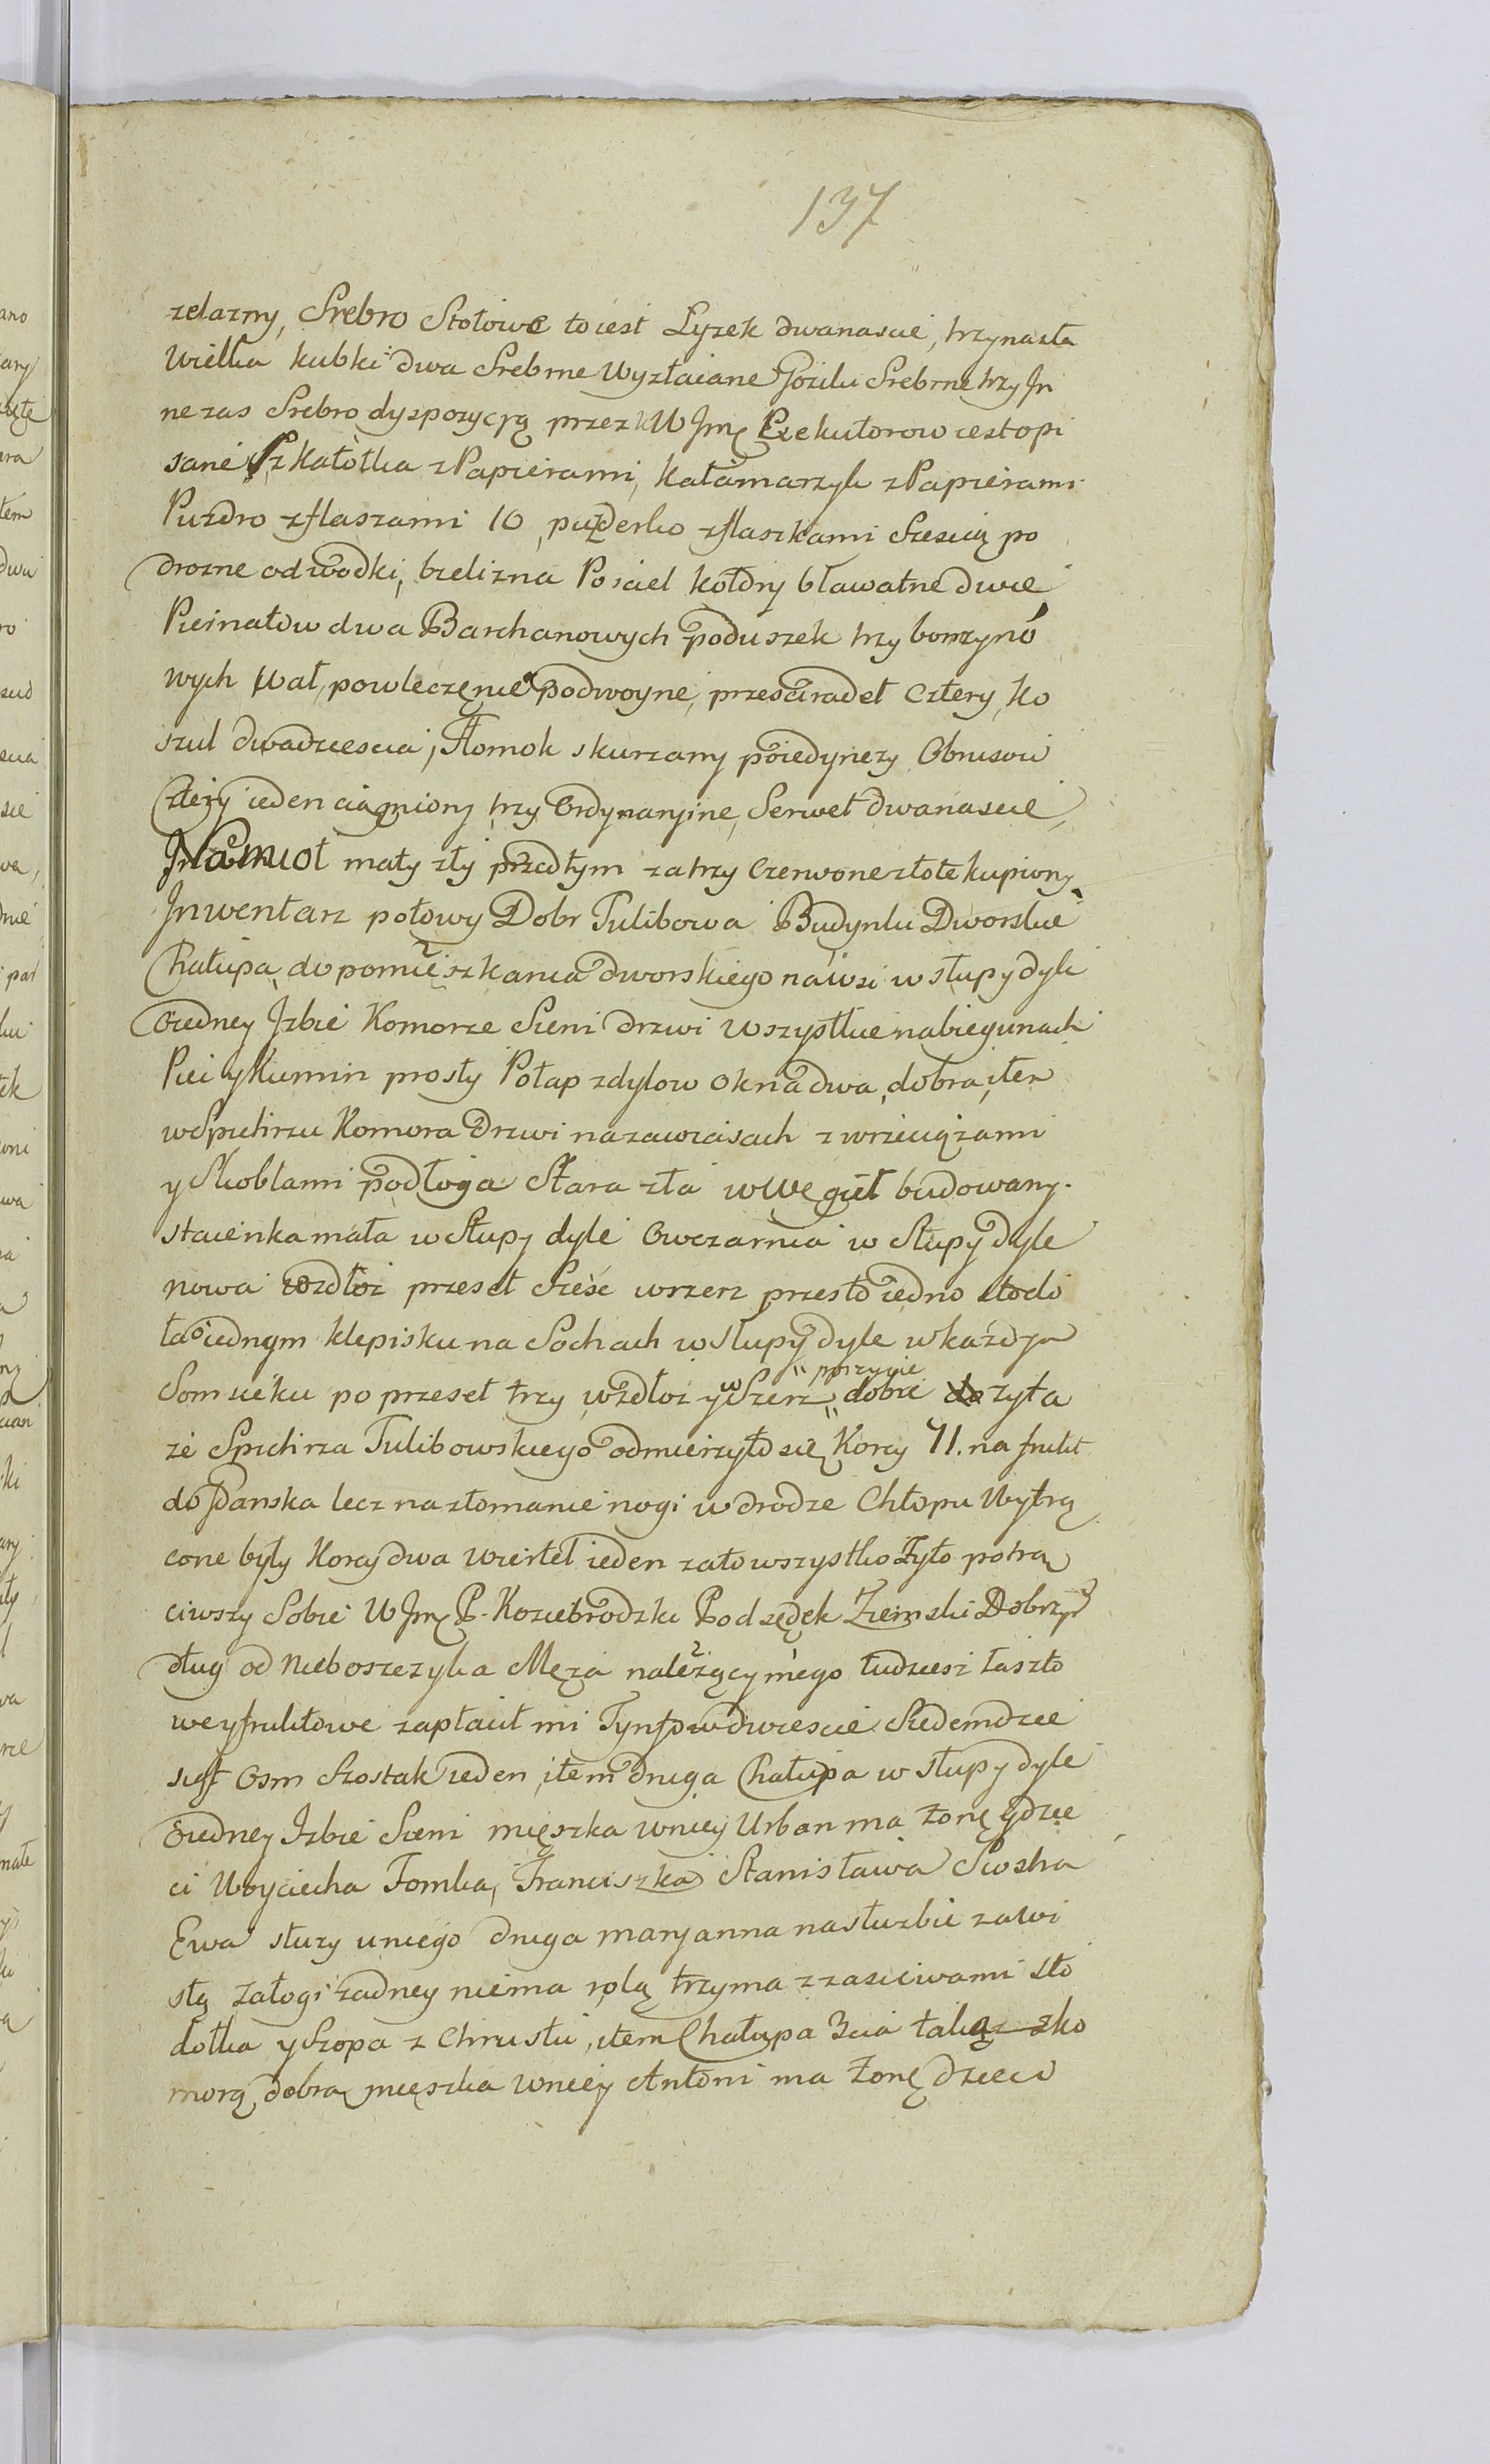 137
zelazny, Srebro Stołowe to iest Łyzek dwanascie, trzynasta
Wielka kubki dwa Srebrne Wyzłaciane Gozdu Srebrne trzy In
ne zas Srebro dyspozycyą przez WJmę Exekutorow iest opi
sane Szkatòłka z Papierami, kałamarzyk z Papierami
Puzdro z flaszami 10, puzderko z flaszkami Szescią po
drozne od wodki, bielizna Posciel kołdry bławatne dwie
Piernatow dwa Barchanowych poduszek trzy
wych powleczęnie podwoyne, przescieradeł cztery, ko
szul dwadziescia, Tłomok skurzany poiedynczy Obrusow
cztery ieden ciągniony trzy Ordynaryine, Serwet dwanascie,
Namiot mały zły przedtym za trzy czerwone złote kupiony
Inwentarz połowy Dobr Tulibowa Budynki Dworskie
Chałupa do pomięszkania dworskiego na wsi w słupy dyle
O iedney Izbie Komorze Sieni drzwi wszystkie na biegunach
Piec y Kumin prosty Połap z dylow okna dwa, dobra, item
w Spichrzu Komora drzwi na zawiasach z wrzeciążami
y Skoblami podłoga Stara zła w Węgieł budowany.
stacienka mała w Słupy dyle Owczarnia w Słupy dyle
nowa wzdłoż przeseł Sześć wszerz przesło iedno stodo
ła o iednym klepisku na Sochach w słupy dyle w kazdym
Somsieku po przeseł trzy wzdłoż y wSzerz " poszycie
dobre zyta
ze Spichrza Tulibowskiego odmierzyło się Korcy 71. na frukt
do Gdanska lecz na złomanie nogi w drodze Chłopu Wytrą
cone były Korcy dwa wiertel ieden za to wszystko Żyto potrą
ciwszy Sobie WJmę P. Koziebrodzki Podsędek Ziemski Dobrzyń
dług od Nieboszczyka Męża należącym'ego tudziesz łaszto
we y fruktowe zapłacił mi Tynfow dwiescie Siedemdzie
siąt Osm Szostak ieden, item druga Chałupa w słupy dyle
O iedney Izbie Sieni mięszka w niey Urban ma żonę y dzie
ci Woyciecha Tomka, Franciszka Stanisława Siostra
Ewa słuzy u niego druga maryanna na słuzbie za Wi
słą Załogi żadney niema rolą trzyma z zasiewami sto
dołka y Szopa z Chrustu, item Chałupa 3cia taka z ko
morą dobra mięszka w niey Antoni ma żonę dzieci